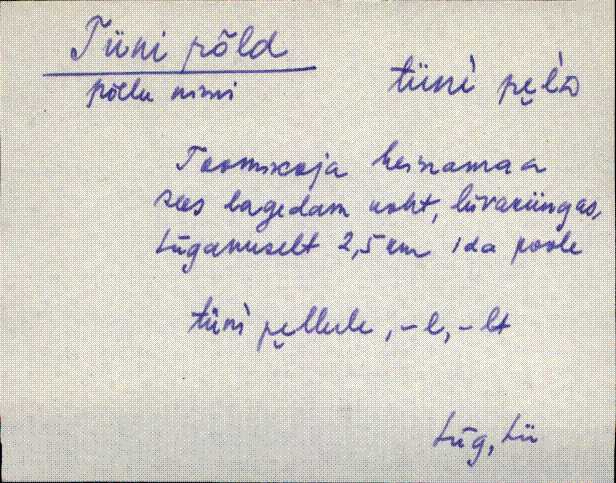 Tüni põld
põllu nimi
tüni pe̮l'd
Toomikoja heinamaa
sees lagedam koht, liivarüngas,
Lüganuselt 2,5 km ida poole
tüni pe̮llule, -l, -lt
Lüg, Lü